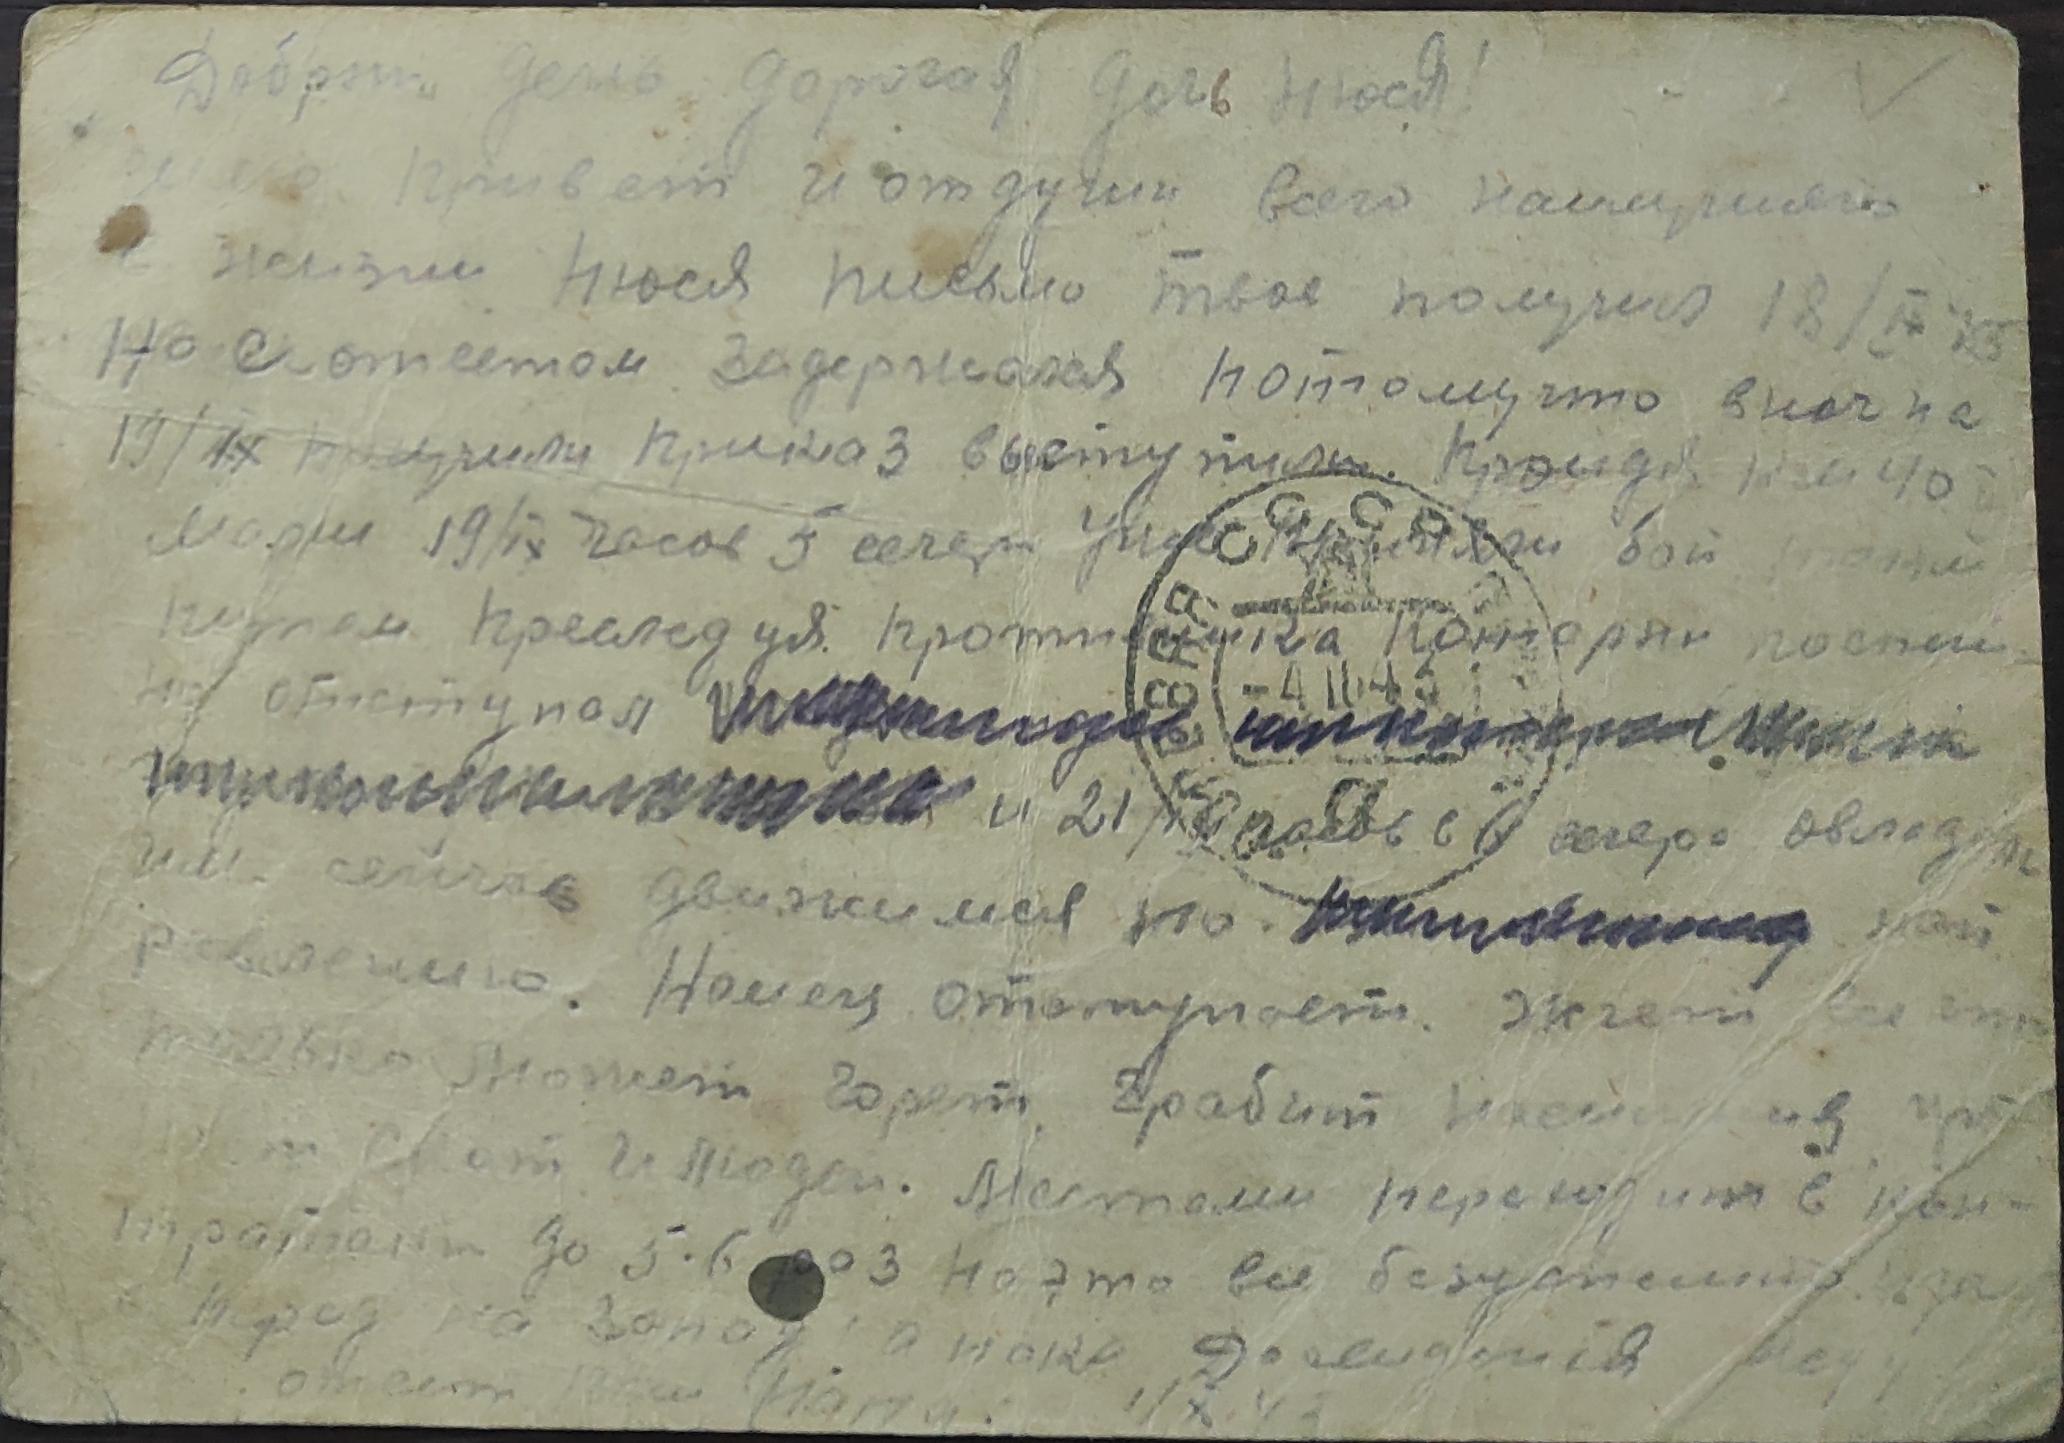 Добрый день дорогая дочь Нюся!
привет и отдуши всего наилучшего
в жизни Нюся письмо твое получил 18/IX 43
Но с ответом задержался потомучто вночь на
19/IX получили приказ выступить. Пройдя км 40
19/IX часов 5 вечера бой
путем преследуя противника который поспеш-
но отступал
и 21/IX часов в 6 вечера овладели
им. сейчас движимся по нап
равлению. Немец отступает. Жгет все что
только может гореть. Грабит
скот и людей. Местами переходит в кон-
тратаки до 5-6 раз но это все безуспешно.
перед на Запад! а пока Досвидания жду
ответ
СССР
-4 10 43